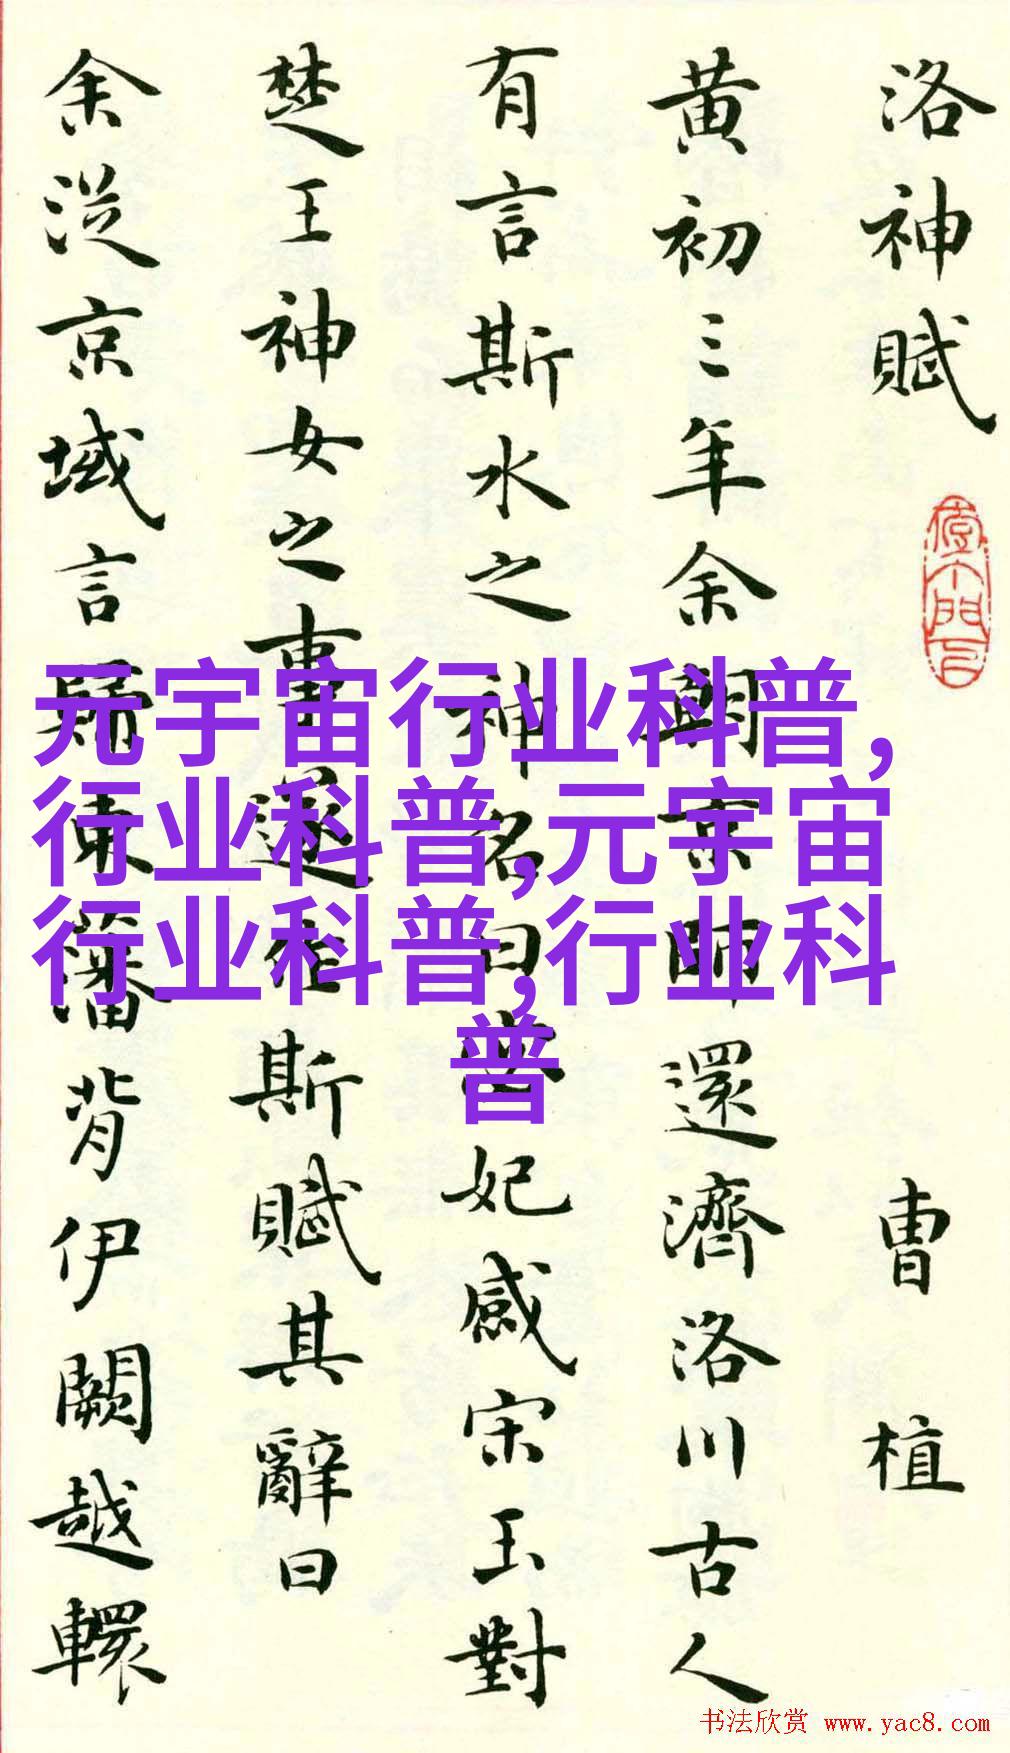 洛神賦 曹植
黄初三年余朝京師還濟洛川古人
有言斯水之神名曰宓妃感宋玉對
楚王神女之事遂作斯賦其辭曰
余從京域言歸東藩背伊闕越轘
元宇宙行业科普,
行业科普,元宇宙
行业科普,行业科
普
书法欣赏 www.yac8.com